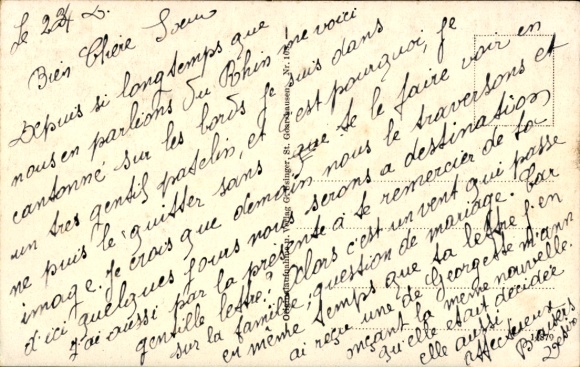 Le 23/4
Bien Chère Soeur
Depuis si longtemps que
nous en parlions du Rhin me voici
cantonné sur les bords je suis dans
un tres gentil patelin, et c'est pourquoi, je
ne puis le quitter sans que te le faire voir en
image. Je crois que demain nous le traversons et
d'ici quelques jours nous serons a destination
J'ai aussi par la presente à te remercier de ta
gentille lettre? Alors c'est un vent qui passe
sur la famille, question de mariage. Car
en même temps que ta lettre j'en
ai reçu une de Georgette m'ann
onçant la même nouvelle.
qu'elle était décidée
elle aussi
Affectueux
Baisers
Verlag Grossinger, St. Goarshausen. Nr.